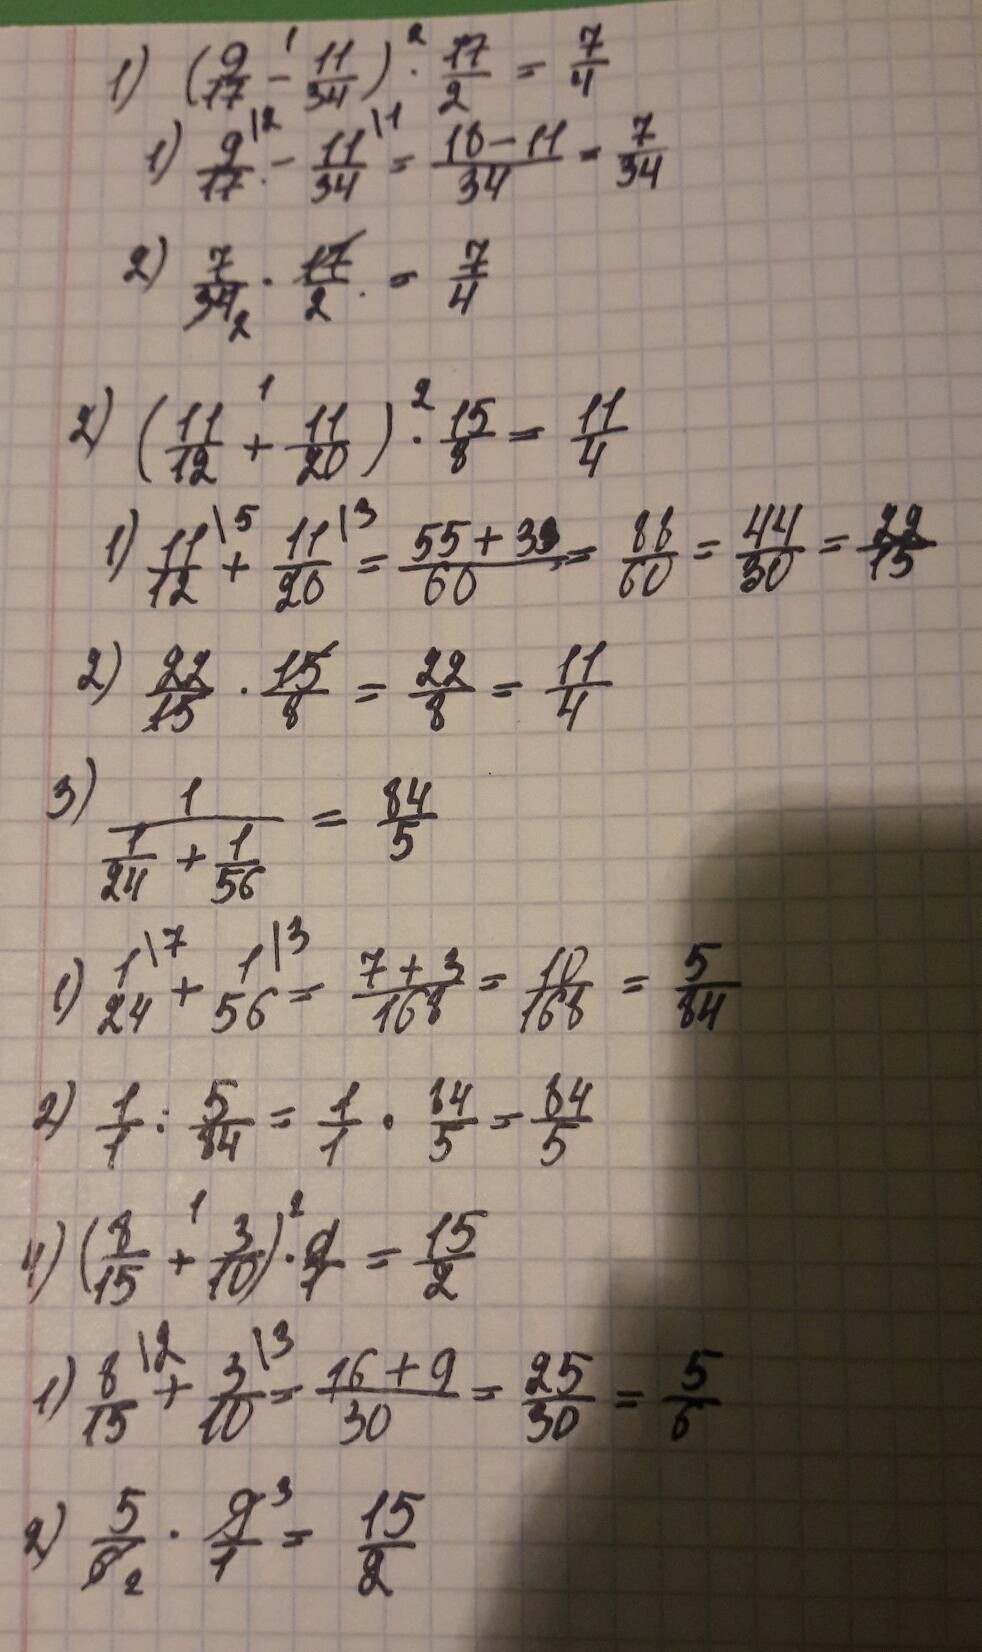 1) (9/17 - 11/34) · 17/2 = 7/4
1) 9/17 \2 - 11/34 \1 = 18-11/34 = 7/34
2) 7/34 2 · 17/2 = 7/4
2) (11/12 + 11/20) · 15/8 = 11/4
1) 11/12 \5 + 11/20 \3 = 55+33/60 = 88/60 = 44/30 = 22/15
2) 22/15 · 15/8 = 22/8 = 11/4
3) 1/(1/24 + 1/56) = 84/5
1) 1/24 \7 + 1/56 \3 = 7+3/168 = 10/168 = 5/84
2) 1/1 : 5/84 = 1/1 · 84/5 = 84/5
4) (8/15 + 3/10) · 9/1 = 15/2
1) 8/15 \2 + 3/10 \3 = 16+9/30 = 25/30 = 5/6
2) 5/6 2 · 9/1 3 = 15/2